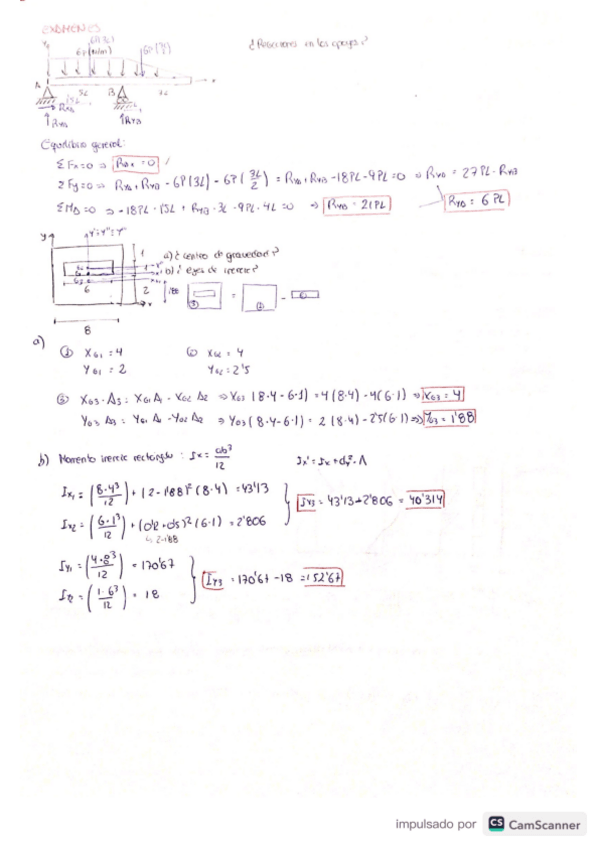 EXÁMENES
¿Reacciones en los apoyos?
6P (N/m)
A
B
3L
3L
x
RXA
RYA
RYB
Equilibrio general:
ΣFx=0 ⇒ RAx = 0
ΣFy=0 ⇒ RYA + RYB - 6P(3L) - 6P(3L/2) = RYA + RYB - 18PL - 9PL = 0 ⇒ RYA = 27PL - RYB
RYA = 6PL
ΣMA=0 ⇒ -18PL · 1'5L + RYB · 3L - 9PL · 4L = 0 ⇒ RYB = 21PL
y
Y=Y'=Y''
a) ¿centro de gravedad?
b) ¿ejes de inercia?
1
1
2
1'88
6
8
x
=
-
a)
① XG1 = 4
YG1 = 2
② XG2 = 4
YG2 = 2'5
③ XG3 · A3 = XG1 A1 - XG2 A2 ⇒ XG3 (8·4-6·1) = 4(8·4) - 4(6·1) ⇒ XG3 = 4
YG3 A3 = YG1 A1 - YG2 A2 ⇒ YG3 (8·4-6·1) = 2(8·4) - 2'5(6·1) ⇒ YG3 = 1'88
b) Momento inercia rectángulo: Ix = ab³/12
Ix' = Ix + dy² · A
Ix1 = (8·4³/12) + (2-1'88)² (8·4) = 43'13
Ix2 = (6·1³/12) + (0'12 + 0'5)² (6·1) = 2'806
2-1'88
Ix3 = 43'13 - 2'806 = 40'314
Iy1 = (4·8³/12) = 170'67
Iy2 = (1·6³/12) = 18
Iy3 = 170'67 - 18 = 152'67
impulsado por CS CamScanner